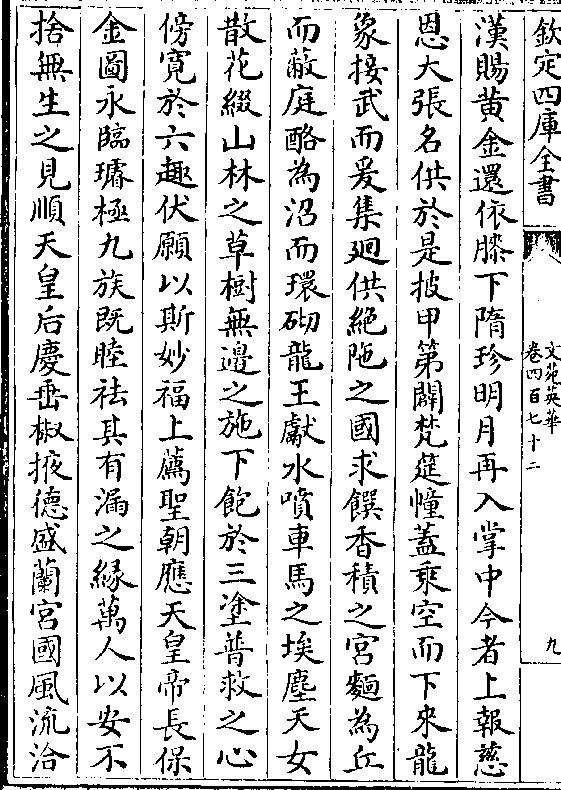 欽定四庫全書
文苑英華
卷四百七十二
九
漢賜黄金還依膝下隋珍明月再入掌中今者上報慈
恩大張名供於是披甲第闢梵筵幢蓋乘空而下來龍
象接武而爰集廻供絶陁之國求饌香積之宮麵為丘
而蔽庭酪為沼而環砌龍王獻水噴車馬之埃塵天女
散花綴山林之草樹無邊之施下飽於三塗普救之心
傍寛於六趣伏願以斯妙福上薦聖朝應天皇帝長保
金圖永臨璿極九族既睦祛其有漏之緣萬人以安不
捨無生之見順天皇后慶垂椒掖德盛蘭宮國風流洽